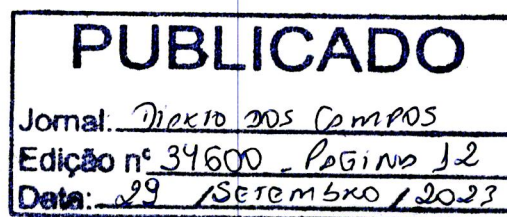 PUBLICADO
Jornal: Diário dos Campos
Edição nº 34600 - Página 12
Data: 29 / Setembro / 2023